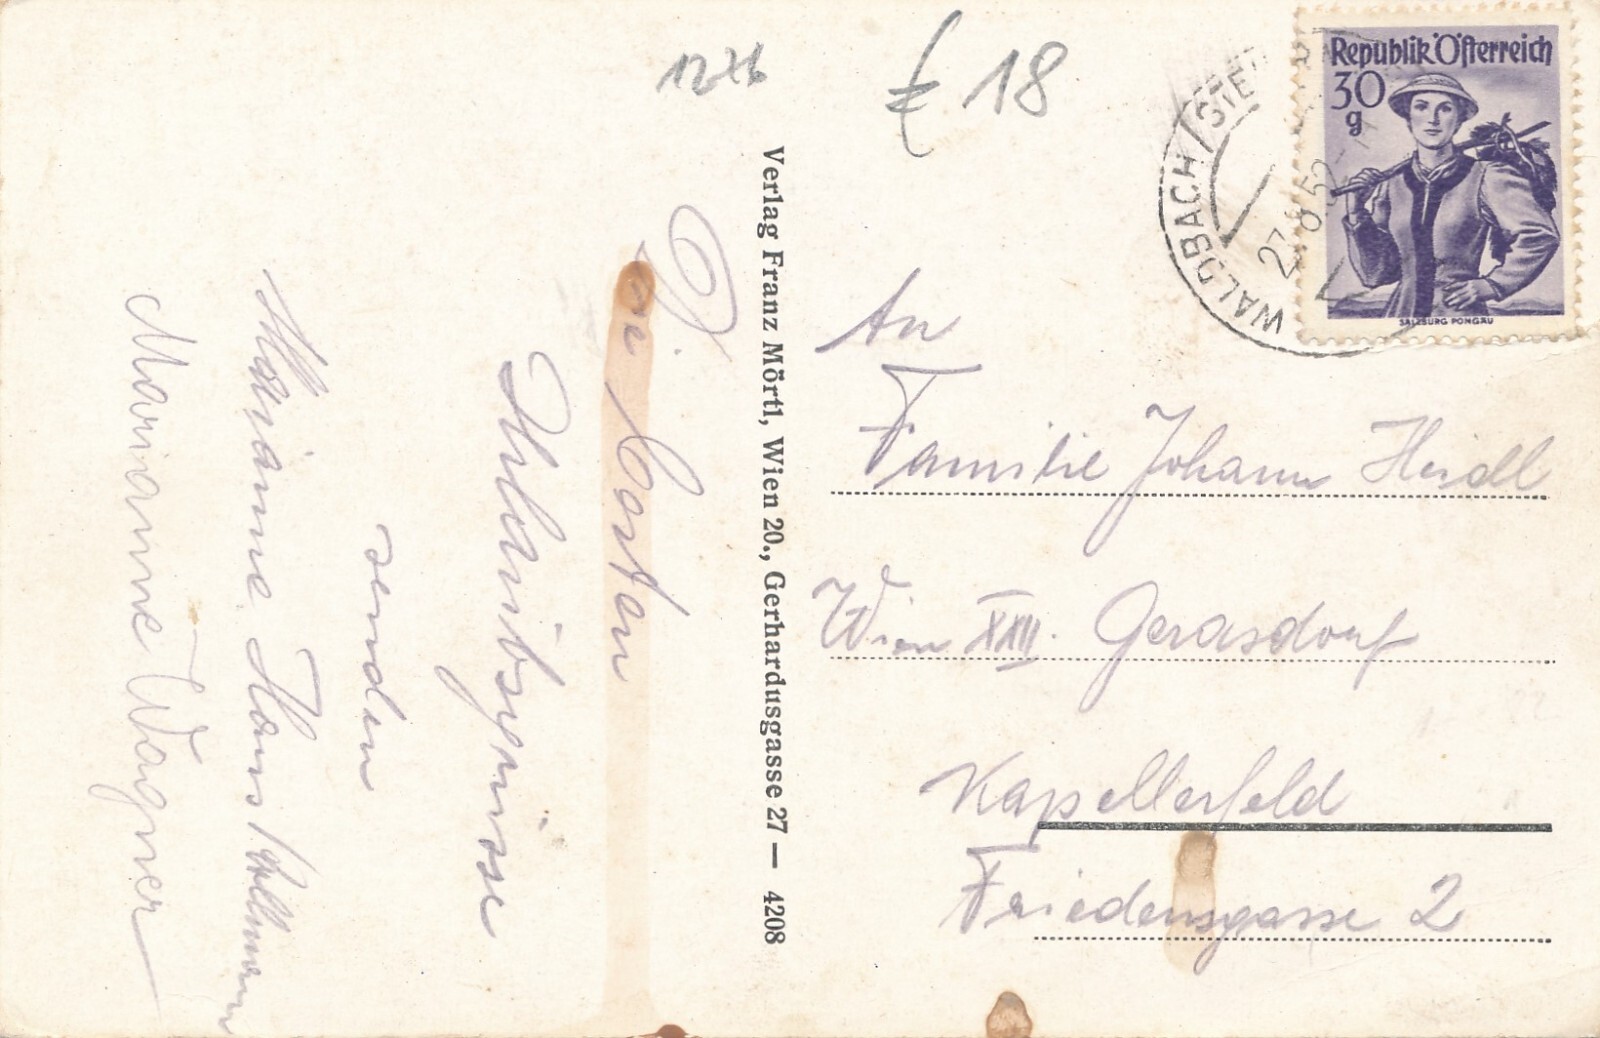 1276
€ 18
Republik Österreich
30
g
SALZBURG PONGAU
WALDBACH STE
27.8.52
D.
Die besten
Urlaubsgrüsse
senden
Marianne Hans
Marianne Wagner
Verlag Franz Mörtl, Wien 20., Gerhardusgasse 27 — 4208
An
Familie Johann Heidl
Wien XXII. Gerasdorf
Kapellerfeld
Friedensgasse 2